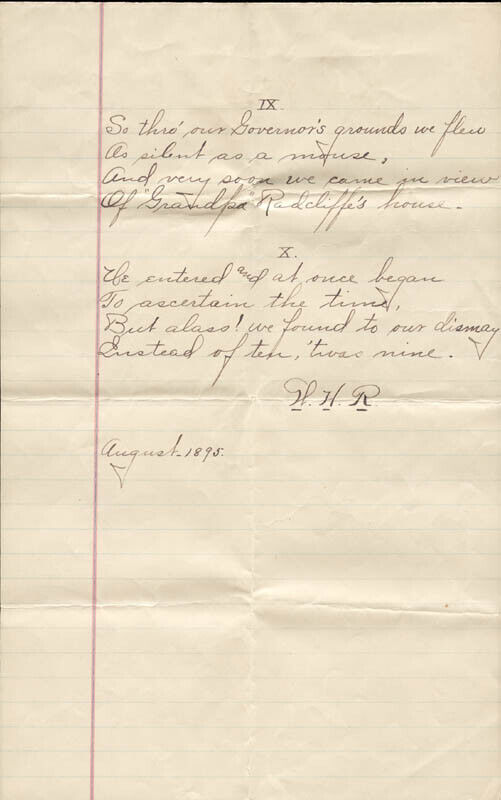 IX.
So thro' our Governor's grounds we flew
As silent as a mouse,
And very soon we came in view
Of "Grandpa" Radcliffe's house.
X.
We entered and at once began
To ascertain the time,
But alass! we found to our dismay
Instead of ten, 'twas nine.
W. H. R.
August-1895.